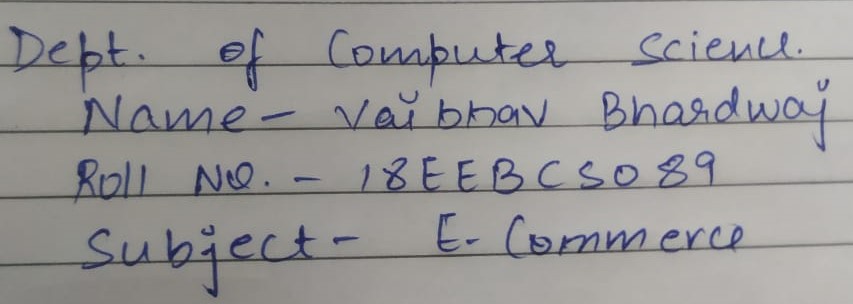 Dept. of Computer Science.
Name- Vaibhav Bhardwaj
Roll No. - 18EEBCS089
Subject- E- Commerce